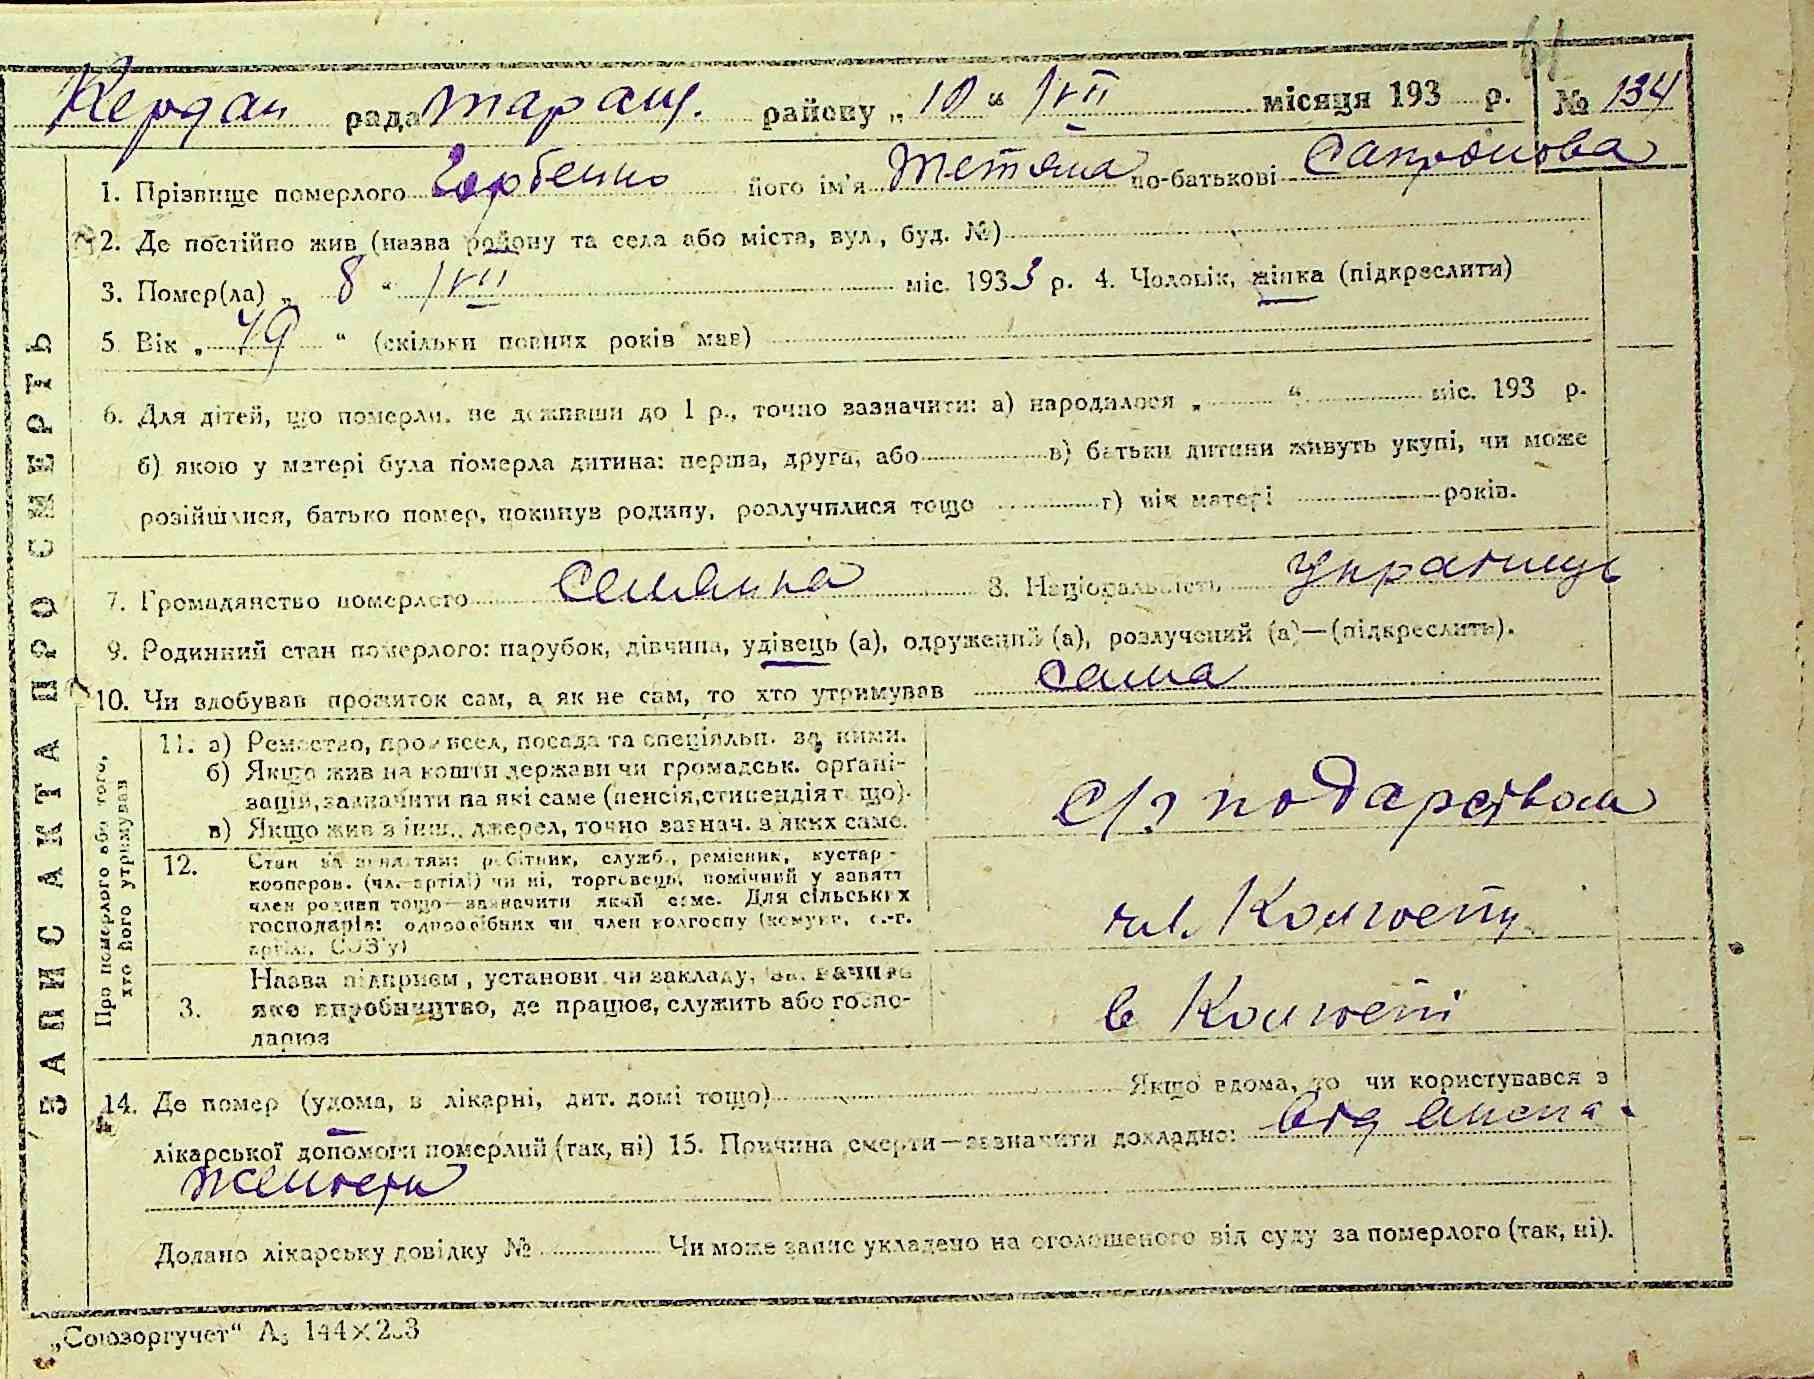 61
Кердан рада Таращ. району „ 10 “ VII місяця 193 р. № 134
ЗАПИС АКТА ПРО СМЕРТЬ
1. Прізвище померлого Горбенко його ім'я Тетяна по-батькові Сапронова
2. Де постійно жив (назва району та села або міста, вул., буд. №)
3. Помер(ла) „ 8 “ VII міс. 1933 р. 4. Чоловік, жінка (підкреслити)
5 Вік „ 49 “ (скільки повних років мав)
6. Для дітей, що померли, не доживши до 1 р., точно зазначити: а) народилося „ “ міс. 193 р.
б) якою у матері була померла дитина: перша, друга, або в) батьки дитини живуть укупі, чи може
розійшлися, батько помер, покинув родину, розлучилися тощо г) вік матері років.
7. Громадянство померлого селянка 8. Національність українець
9. Родинний стан померлого: парубок, дівчина, удівець (а), одружений (а), розлучений (а)—(підкреслить).
10. Чи здобував прожиток сам, а як не сам, то хто утримував сама
Про померлого або того,
хто його утримував
11. а) Ремество, промисел, посада та спеціяльн. за ними.
б) Якщо жив на кошти держави чи громадськ. орґані-
зацій, зазначити на які саме (пенсія, стипендія т. що).
в) Якщо жив з інш. джерел, точно зазнач. з яких саме.
с/г подарством
12. Стан за заняттям: робітник, служб., ремісник, кустар -
кооперов. (чл.-артілі) чи ні, торговець, помічний у занятт
член родини тощо—зазначити який саме. Для сільських
господарів: одноосібник чи член колгоспу (комуни, с.-г.
артілі, СОЗ'у)
чл. Колгоспу
3. Назва підприєм, установи чи закладу, зазначивши
яке виробництво, де працює, служить або госпо-
дарює
в Колгоспі
14. Де помер (удома, в лікарні, дит. домі тощо) Якщо вдома, то чи користувався з
лікарської допомоги померлий (так, ні) 15. Причина смерти—зазначити докладно: від висна-
жености
Додано лікарську довідку № Чи може запис укладено на оголошеного від суду за померлого (так, ні).
„Союзоргучет“ А5 144×203